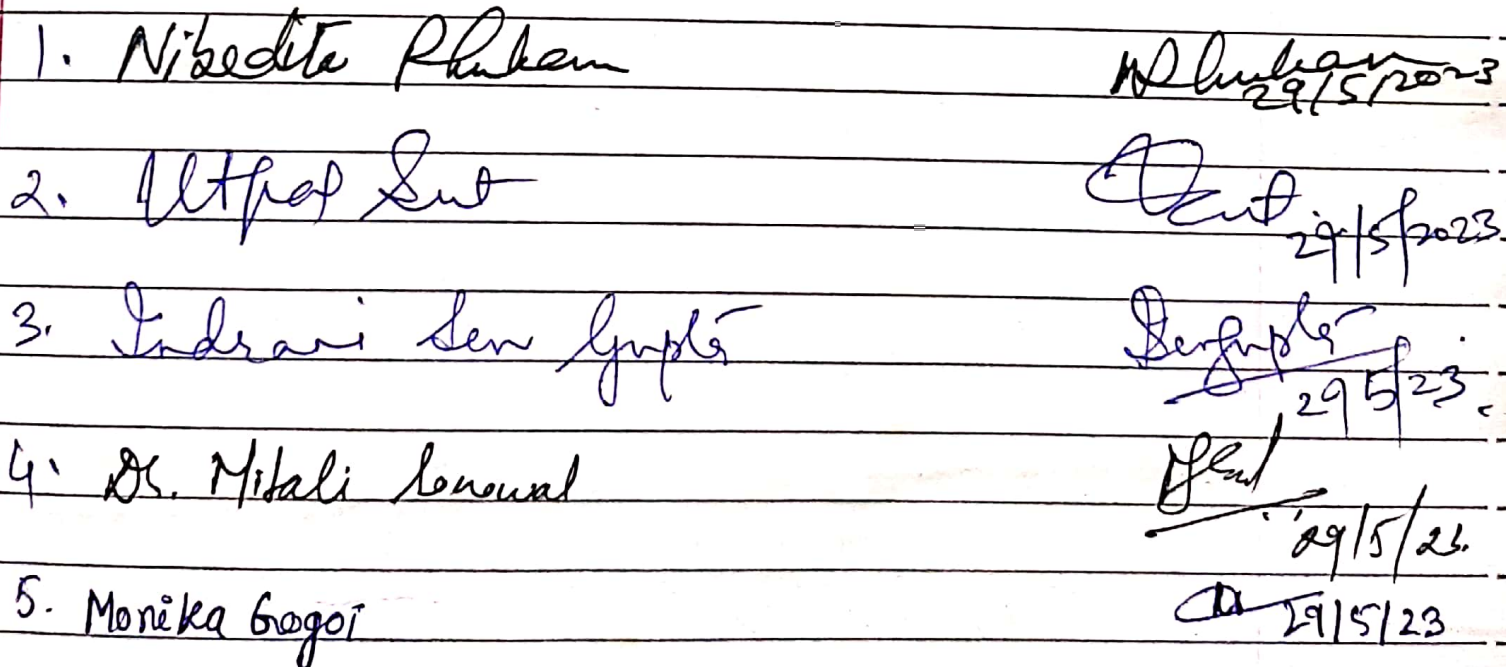 1. Nibedita Phukan NPhukan 29/5/2023
2. Utpal Sut USut 29/5/2023.
3. Indrani Sen Gupta Sengupta 29/5/23.
4. Dr. Mitali Sonowal 29/5/23.
5. Monika Gogoi 29/5/23